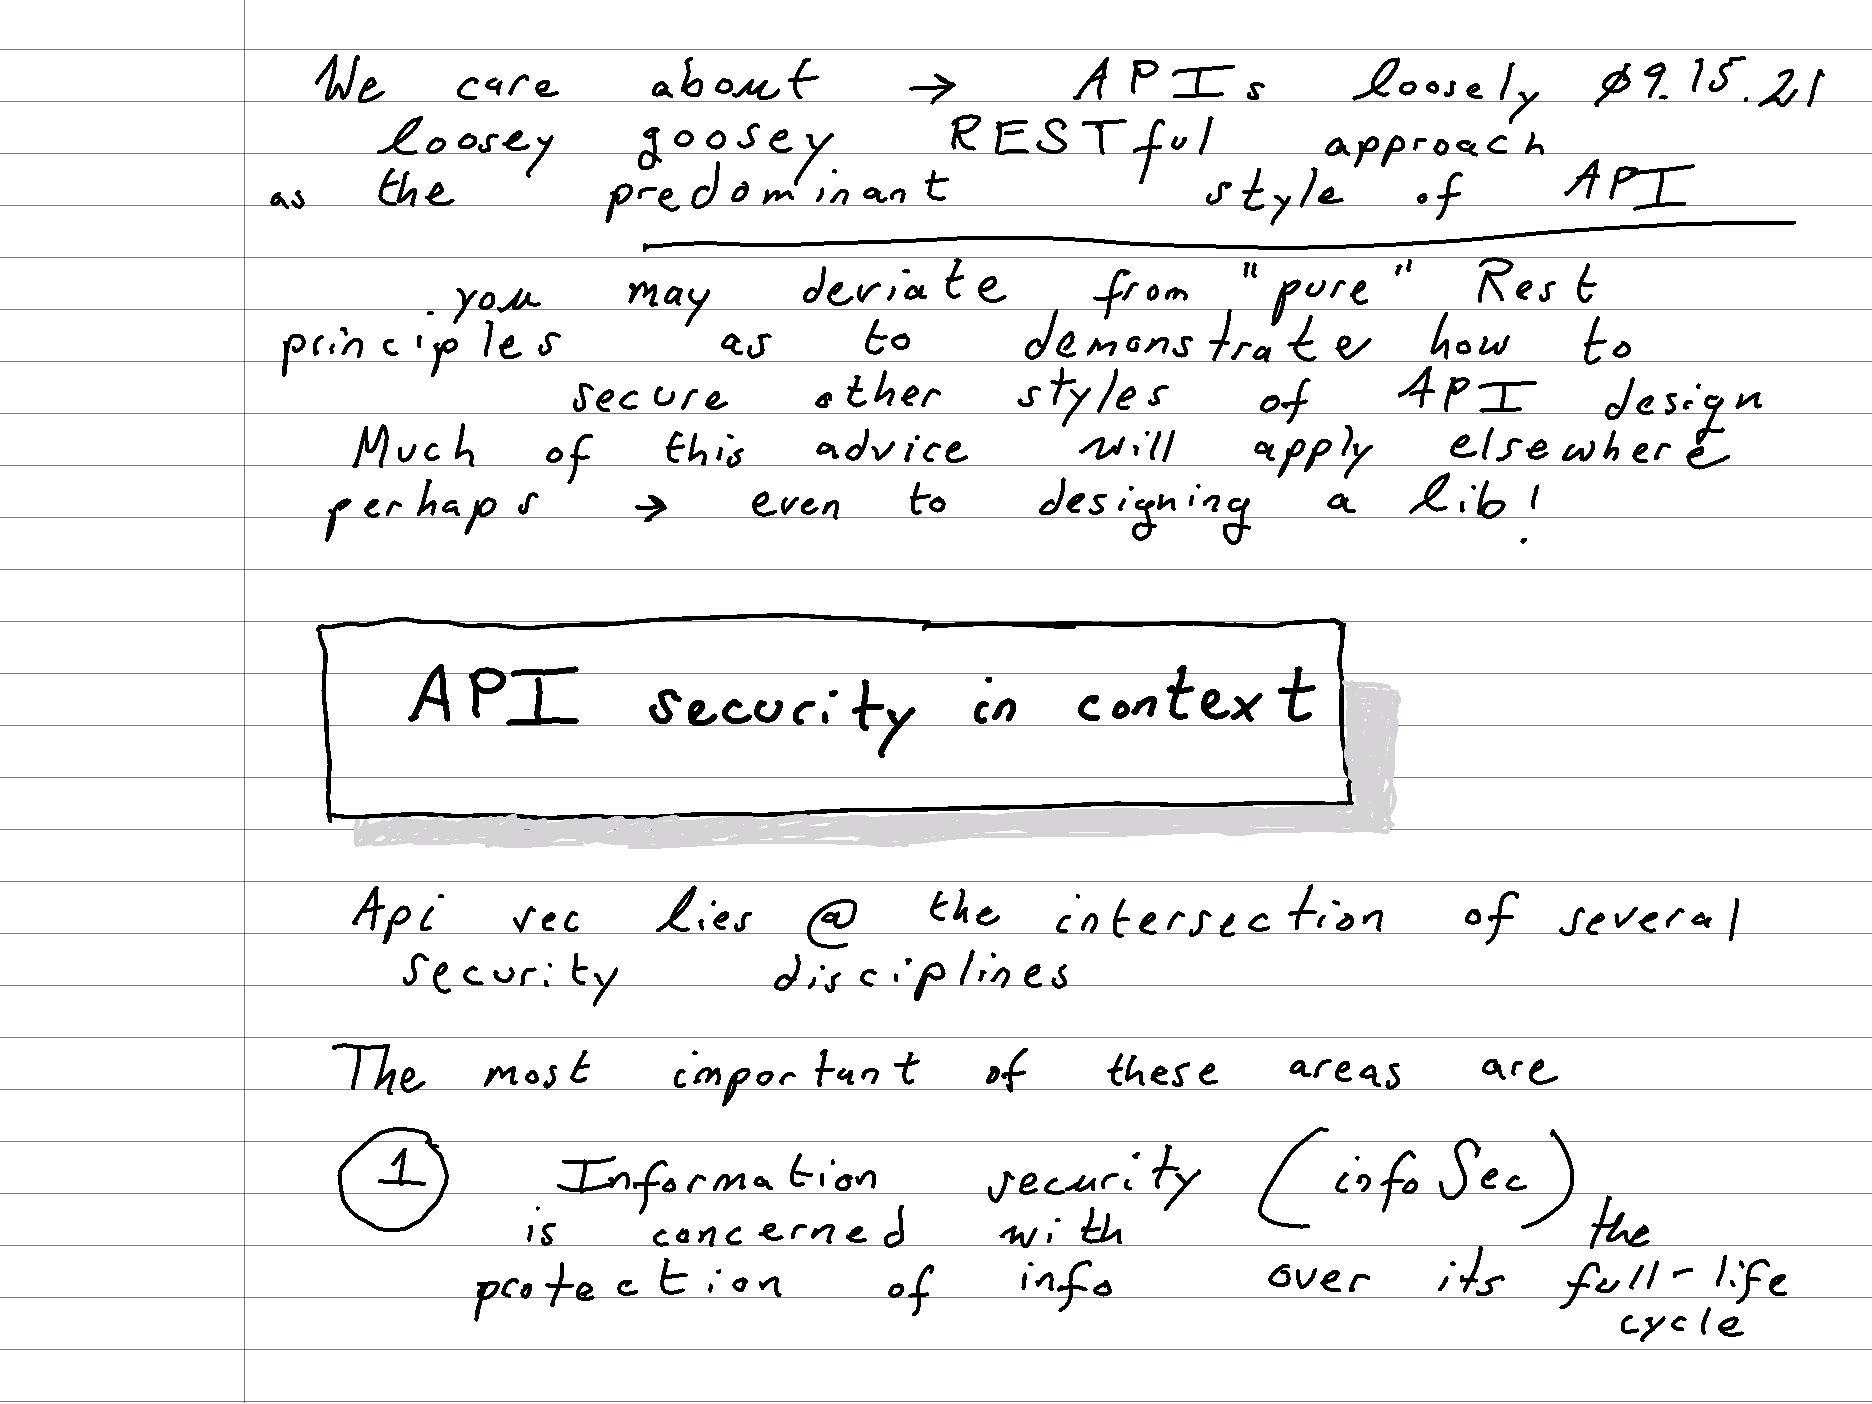 We care about → APIs loosely ø9.15.21
loosey goosey RESTful approach
as the predominant style of API
. you may deviate from "pure" Rest
principles as to demonstrate how to
secure other styles of API design
Much of this advice will apply elsewhere
perhaps → even to designing a lib!
API security in context
Api sec lies @ the intersection of several
security disciplines
The most important of these areas are
1 Information security (infoSec)
is concerned with the
protection of info over its full-life
cycle